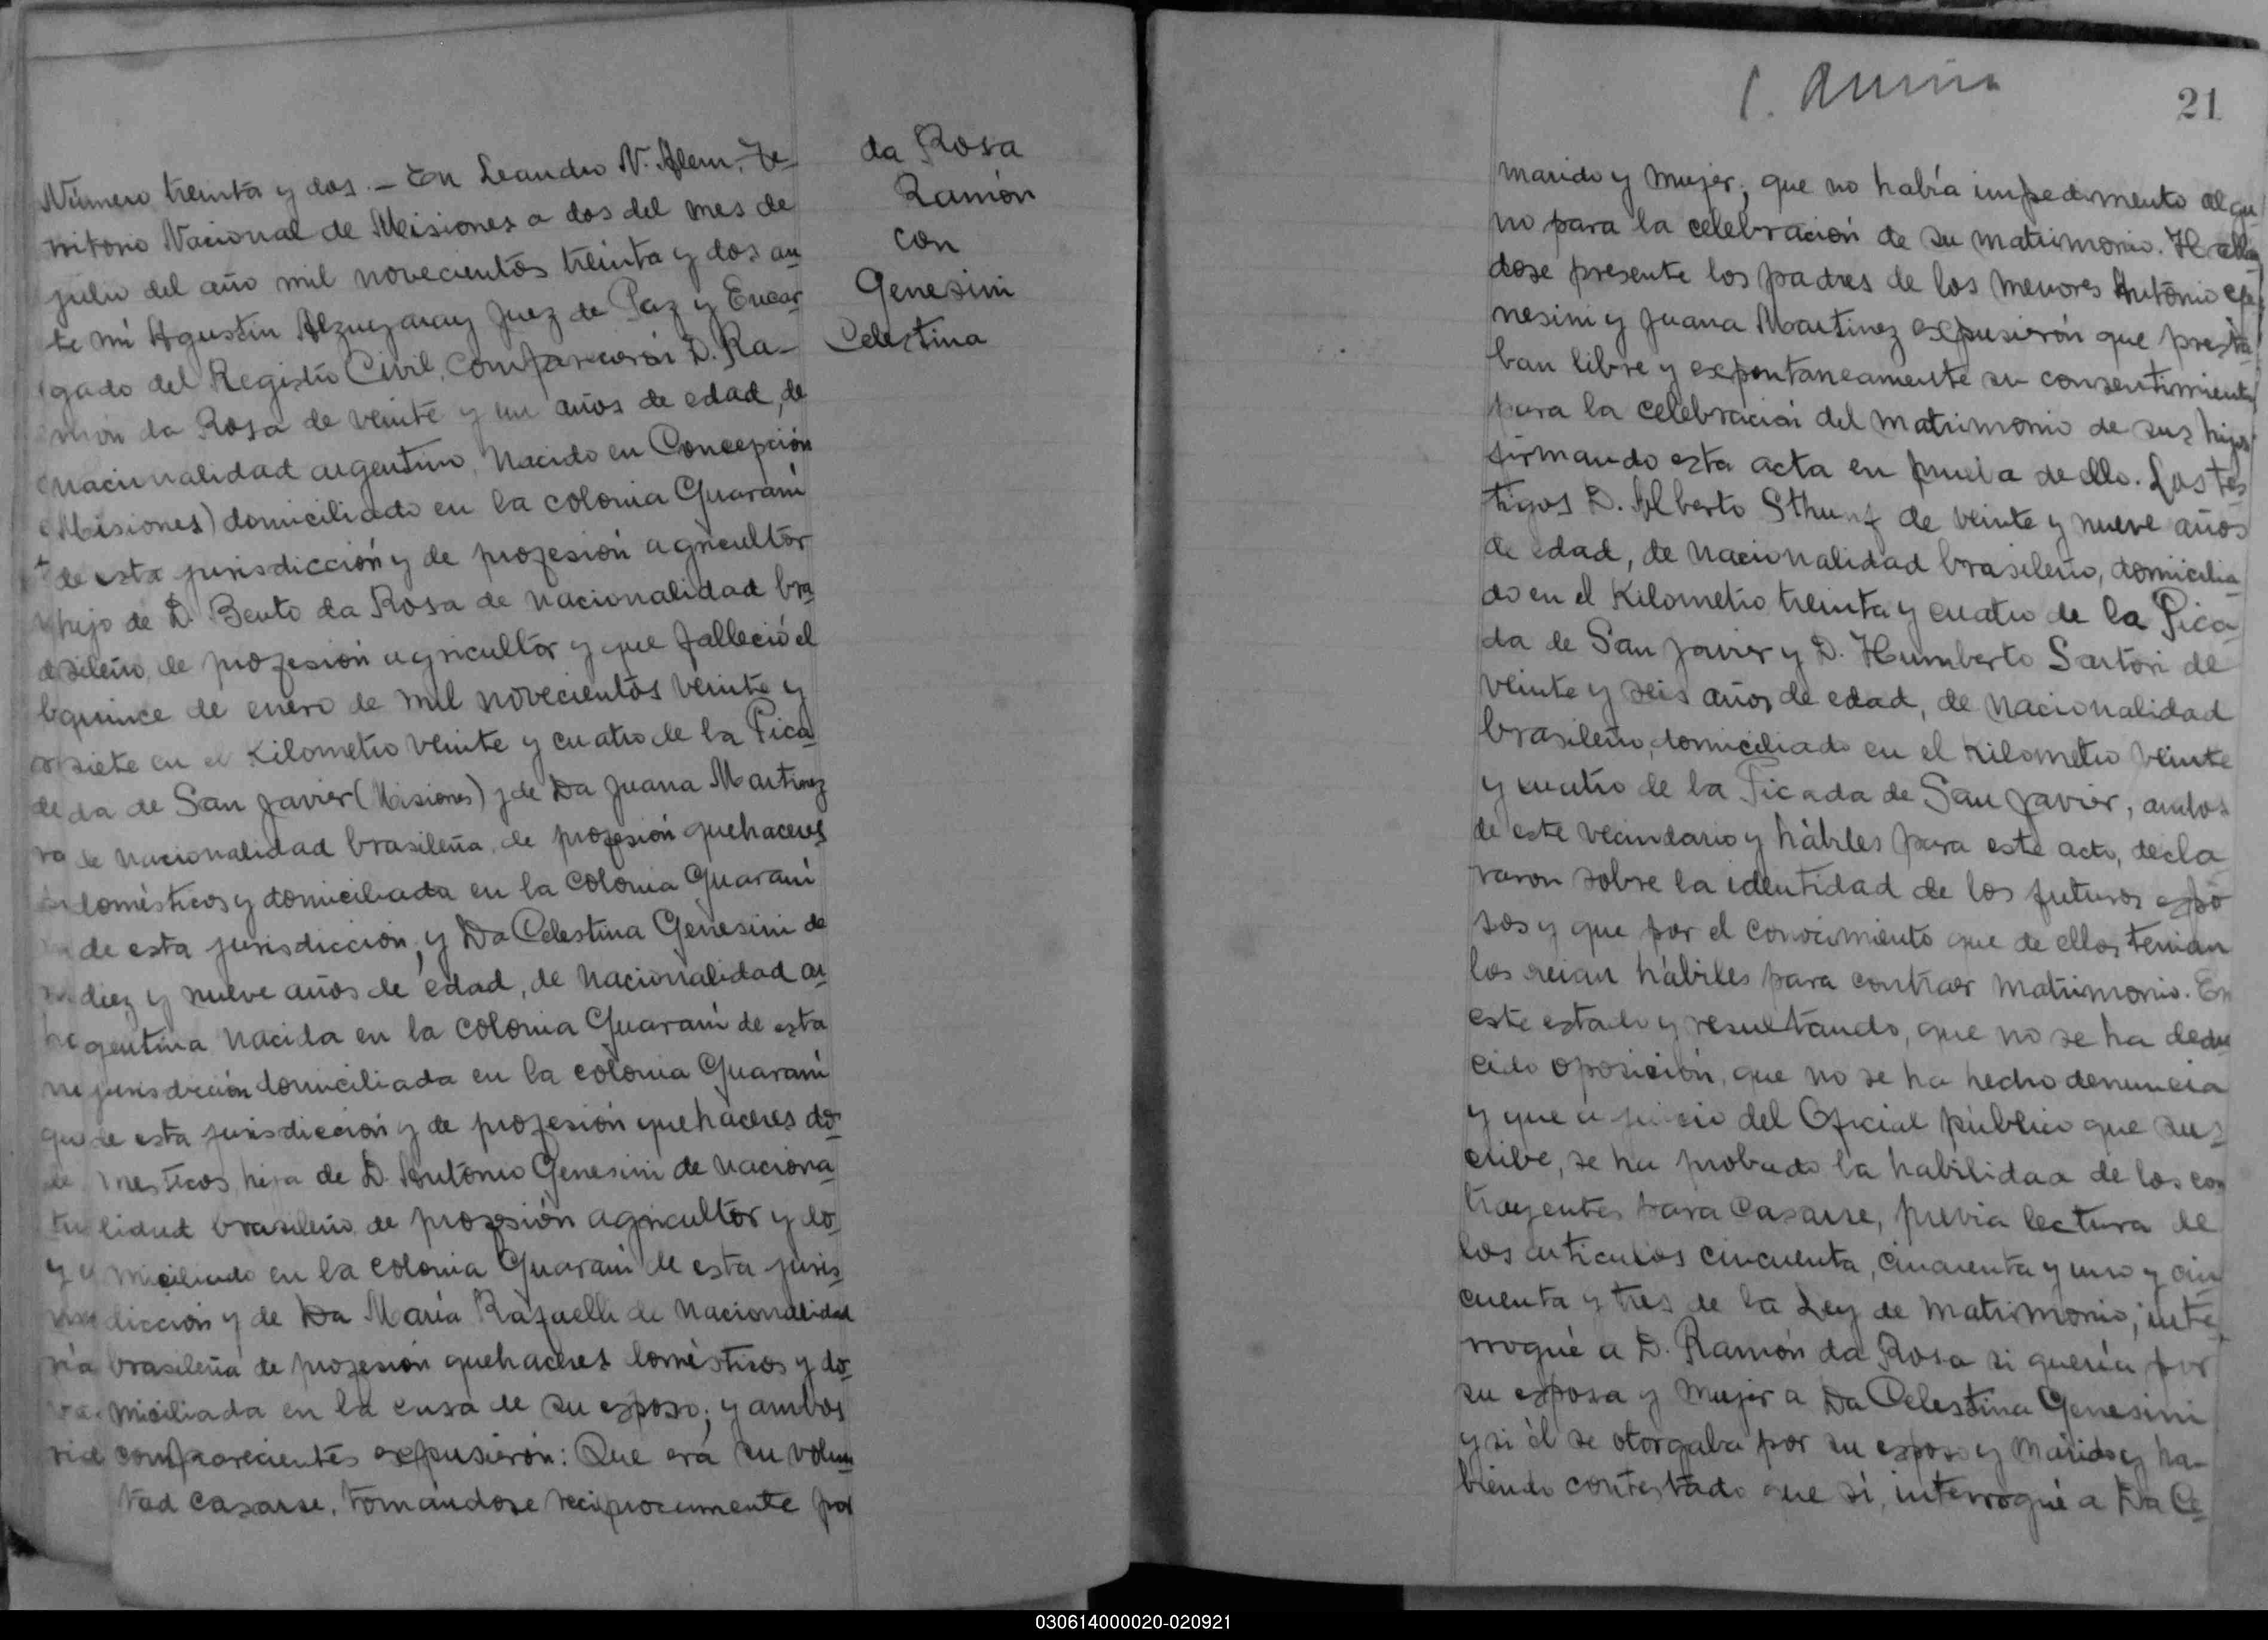 Número treinta y dos. – En Leandro N. Alem, Te-
rritorio Nacional de Misiones a dos del mes de
julio del año mil novecientos treinta y dos an
te mí Agustín Alzugaray Juez de Paz y Encar
gado del Registro Civil, comparecerón D. Ra-
món da Rosa de veinte y un años de edad, de
nacionalidad argentino, nacido en Concepción
(Misiones) domiciliado en la colonia Guaraní
de esta jurisdicción y de profesión agricultor
hijo de D. Bento da Rosa de nacionalidad bra
sileño, de profesión agricultor y que falleció el
quince de enero de mil novecientos veinte y
siete en el Kilometro veinte y cuatro de la Pica
da de San Javier (Misiones) y de Da Juana Martinez
de nacionalidad brasileña, de profesión quehaceres
domésticos y domiciliada en la colonia Guaraní
de esta jurisdicción, y Da Celestina Genesini de
diez y nueve años de edad, de nacionalidad ar
gentina nacida en la colonia Guaraní de esta
jurisdicción domiciliada en la colonia Guaraní
de esta jurisdicción y de profesión quehaceres do-
mesticos, hija de D. Antonio Genesini de naciona
lidad brasileño, de profesión agricultor y do
miciliado en la colonia Guaraní de esta juris
dicción y de Da María Rafaelli de nacionalidad
brasileña de profesión quehaceres domésticos y do
miciliada en la casa de su esposo; y ambos
comparecientes expusierón: Que era su volun
tad casarse, tomándose reciprocamente por
da Rosa
Ramón
con
Genesini
Celestina
21
marido y mujer, que no había impedimento algu
no para la celebración de su matrimonio. Hallán
dose presente los padres de los menores Antonio Ge
nesini y Juana Martinez expusierón que presta
ban libre y expontaneamente su consentimiento
para la celebración del matrimonio de sus hijos
firmando esta acta en prueba de ello. Los tes
tigos D. Alberto de veinte y nueve años
de edad, de nacionalidad brasileño, domicilia
do en el Kilometro treinta y cuatro de la Pica
da de San Javier y D. Humberto Sartori de
veinte y seis años de edad, de nacionalidad
brasileño, domiciliado en el kilometro veinte
y cuatro de la Picada de San Javier, ambos
de este vecindario y hábiles para este acto, decla
raron sobre la identidad de los futuros espo
sos y que por el conocimiento que de ellos tenian
los creian hábiles para contraer matrimonio. En
este estado y resultando, que no se ha dedu
cido oposición, que no se ha hecho denuncia
y que a juicio del Oficial público que sus
cribe, se ha probado la habilidad de los con
trayentes para casarse, previa lectura de
los articulos cincuenta, cincuenta y uno y cin
cuenta y tres de la Ley de matrimonio; inte
rrogué a D. Ramón da Rosa si quería por
su esposa y mujer a Da Celestina Genesini
y si él se otorgaba por su esposo y marido y ha-
biendo contestado que sí, interrogué a Da Ce
030614000020-020921